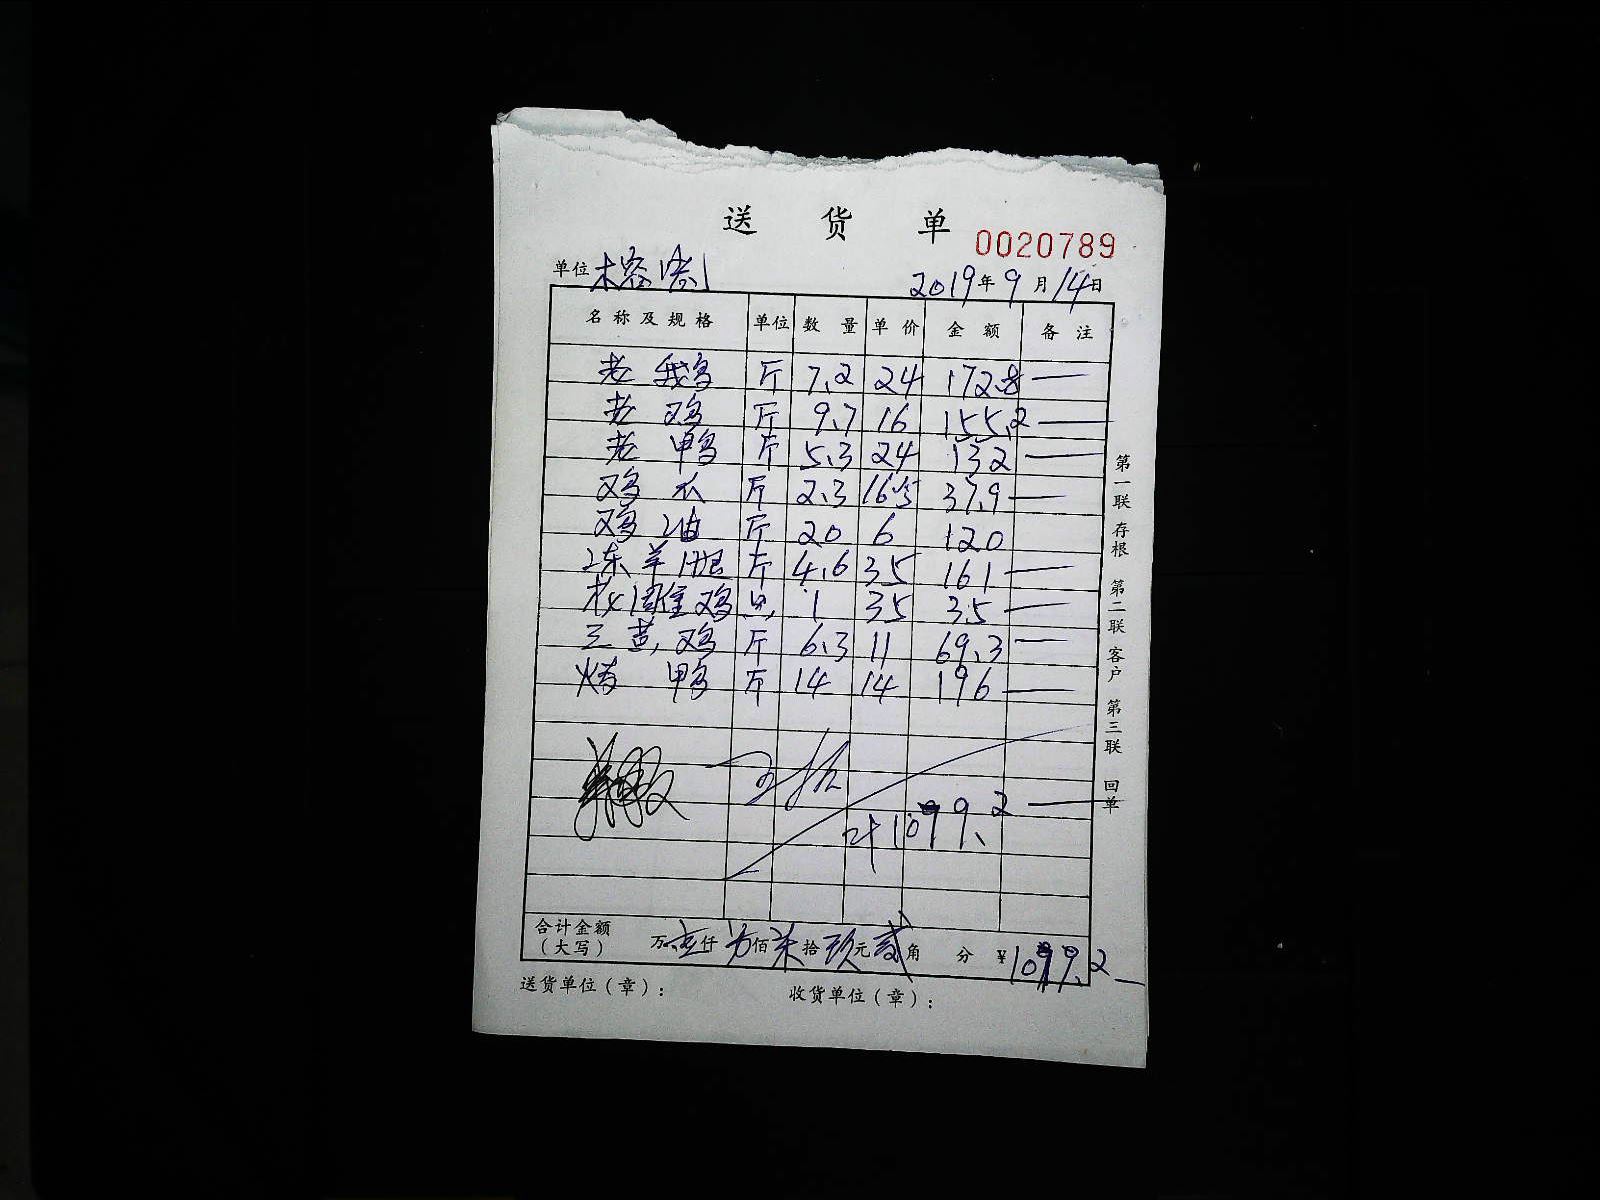 送 货 单
0020789
单位 木容
2019年9月14日
名称及规格 单位 数量 单价 金额 备注
老 鹅 斤 7.2 24 172.8
老 鸡 斤 9.7 16 155.2
老 鸭 斤 5.3 24 132
鸡 爪 斤 2.3 16.5 37.9
鸡 油 斤 20 6 120
冻羊腿 斤 4.6 35 161
鸡 只 1 35 35
三黄鸡 斤 6.3 11 69.3
烤 鸭 斤 14 14 196
计 1099.2
合计金额
(大写) 万 壹仟 佰 柒拾 玖元 贰角 分 ¥1099.2
送货单位(章): 收货单位(章):
第一联 存根 第二联 客户 第三联 回单